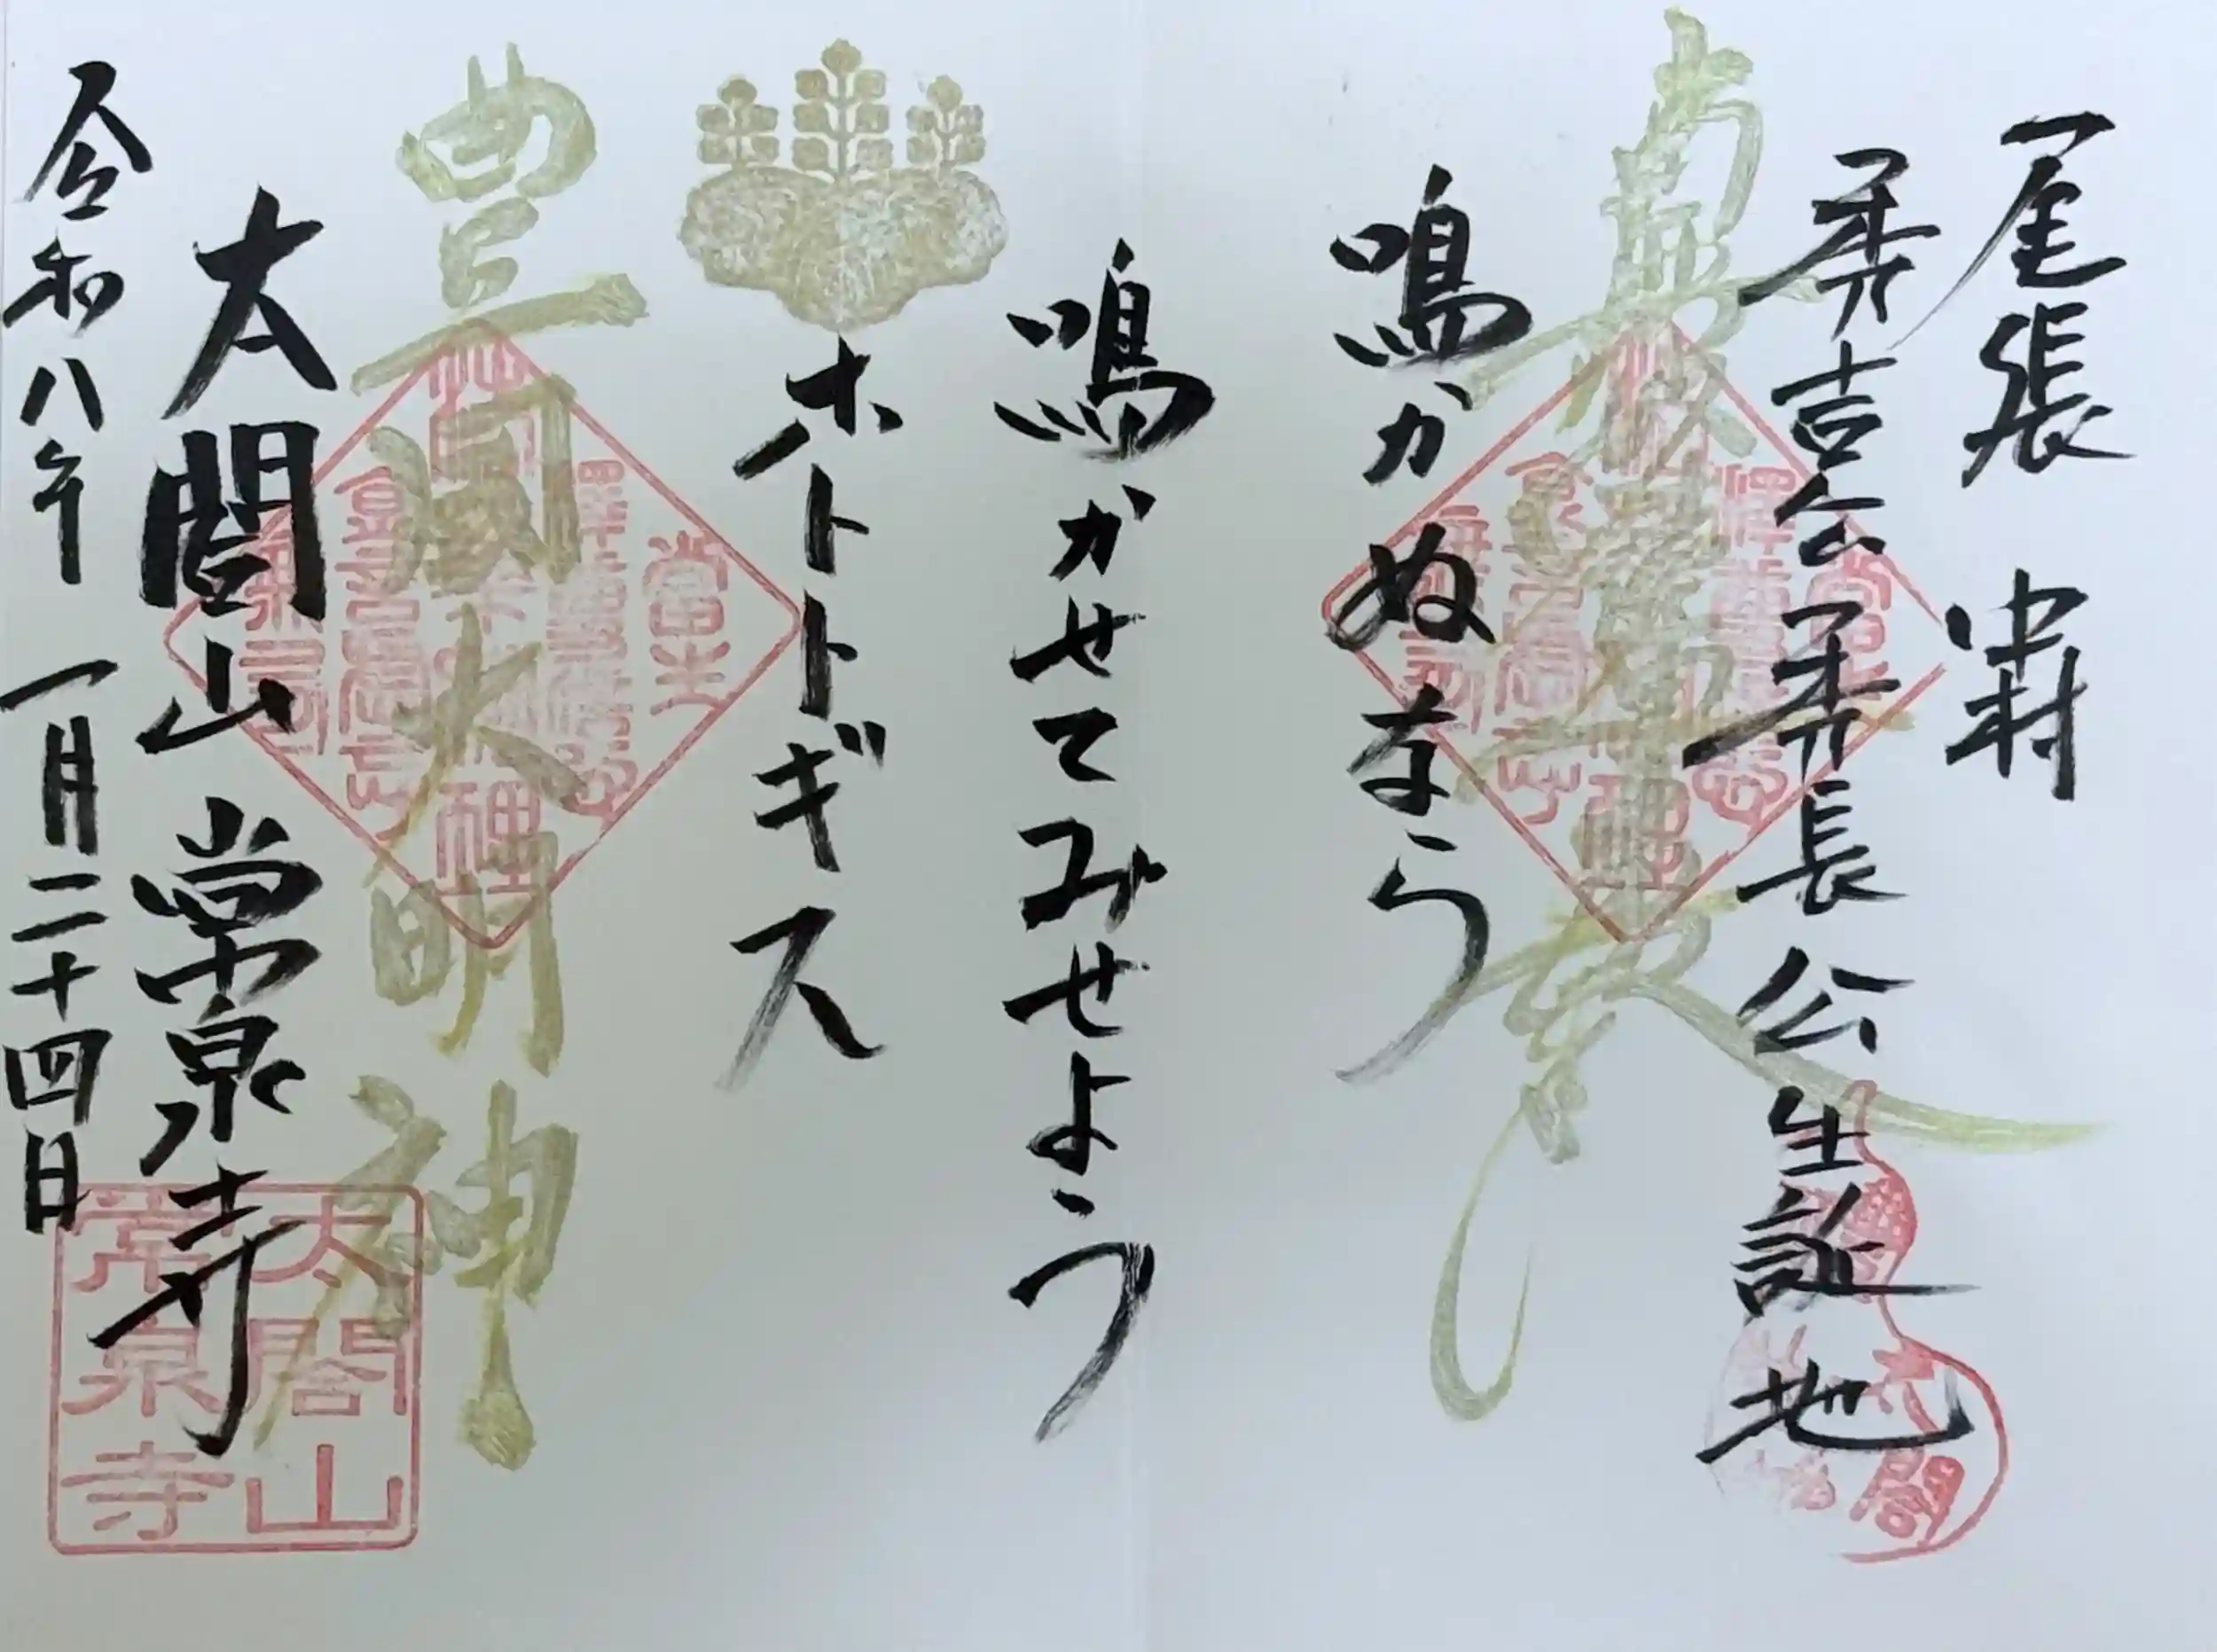 尾張 中村
秀吉公 秀長公 生誕地
南無妙法蓮華経
鳴かぬなら
鳴かせてみせよう
ホトトギス
豊国大明神
太閤山 常泉寺
令和八年 一月二十四日
太閤山
常泉寺